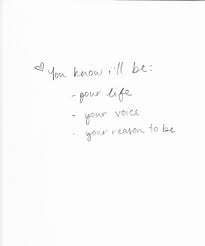 ♡ You know i'll be:
- your life
- your voice
- your reason to be